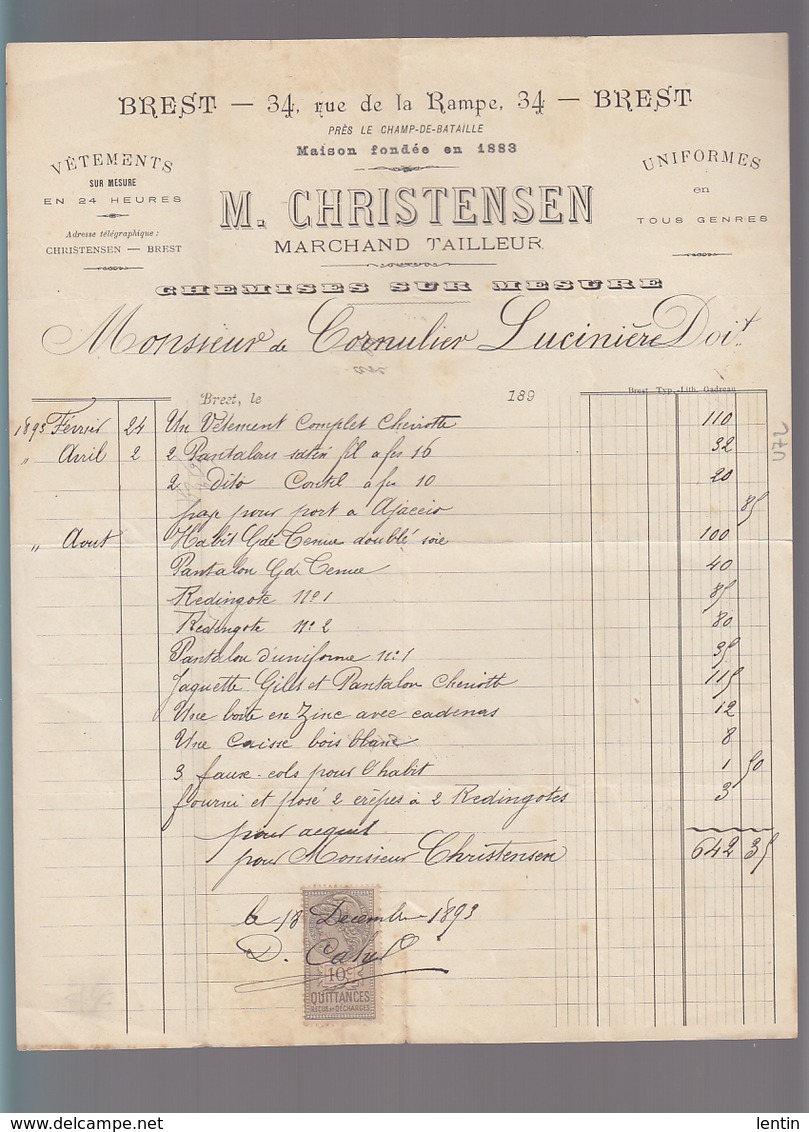 BREST — 34, rue de la Rampe, 34 — BREST
PRÈS LE CHAMP-DE-BATAILLE
Maison fondée en 1883
VÊTEMENTS
SUR MESURE
EN 24 HEURES
Adresse télégraphique :
CHRISTENSEN — BREST
UNIFORMES
en
TOUS GENRES
M. CHRISTENSEN
MARCHAND TAILLEUR
CHEMISES SUR MESURE
Monsieur de Cornulier Lucinière Doit
Brest, le 189
Brest Typ.-Lith. Gadreau
1893 Février 24 Un Vêtement Complet Cheviotte 110
" Avril 2 2 Pantalons satin fil a fcs 16 32
2 dito Coutil à fcs 10 20
pap pour port à Ajaccio 85
" Aout Habit Gde Tenue doublé soie 100
Pantalon Gde Tenue 40
Redingote No 1 85
Redingote No 2 80
Pantalon d'uniforme No 1 35
Jaquette Gilet et Pantalon Cheviotte 115
Une boite en Zinc avec cadenas 12
Une Caisse bois blanc 8
3 faux-cols pour l'habit 1 50
fourni et posé 2 crêpes à 2 Redingotes 3
642 35
pour acquit
pour Monsieur Christensen
le 18 Decembre 1893
D.
10c
QUITTANCES
REÇUS ET DÉCHARGES
270
lentin